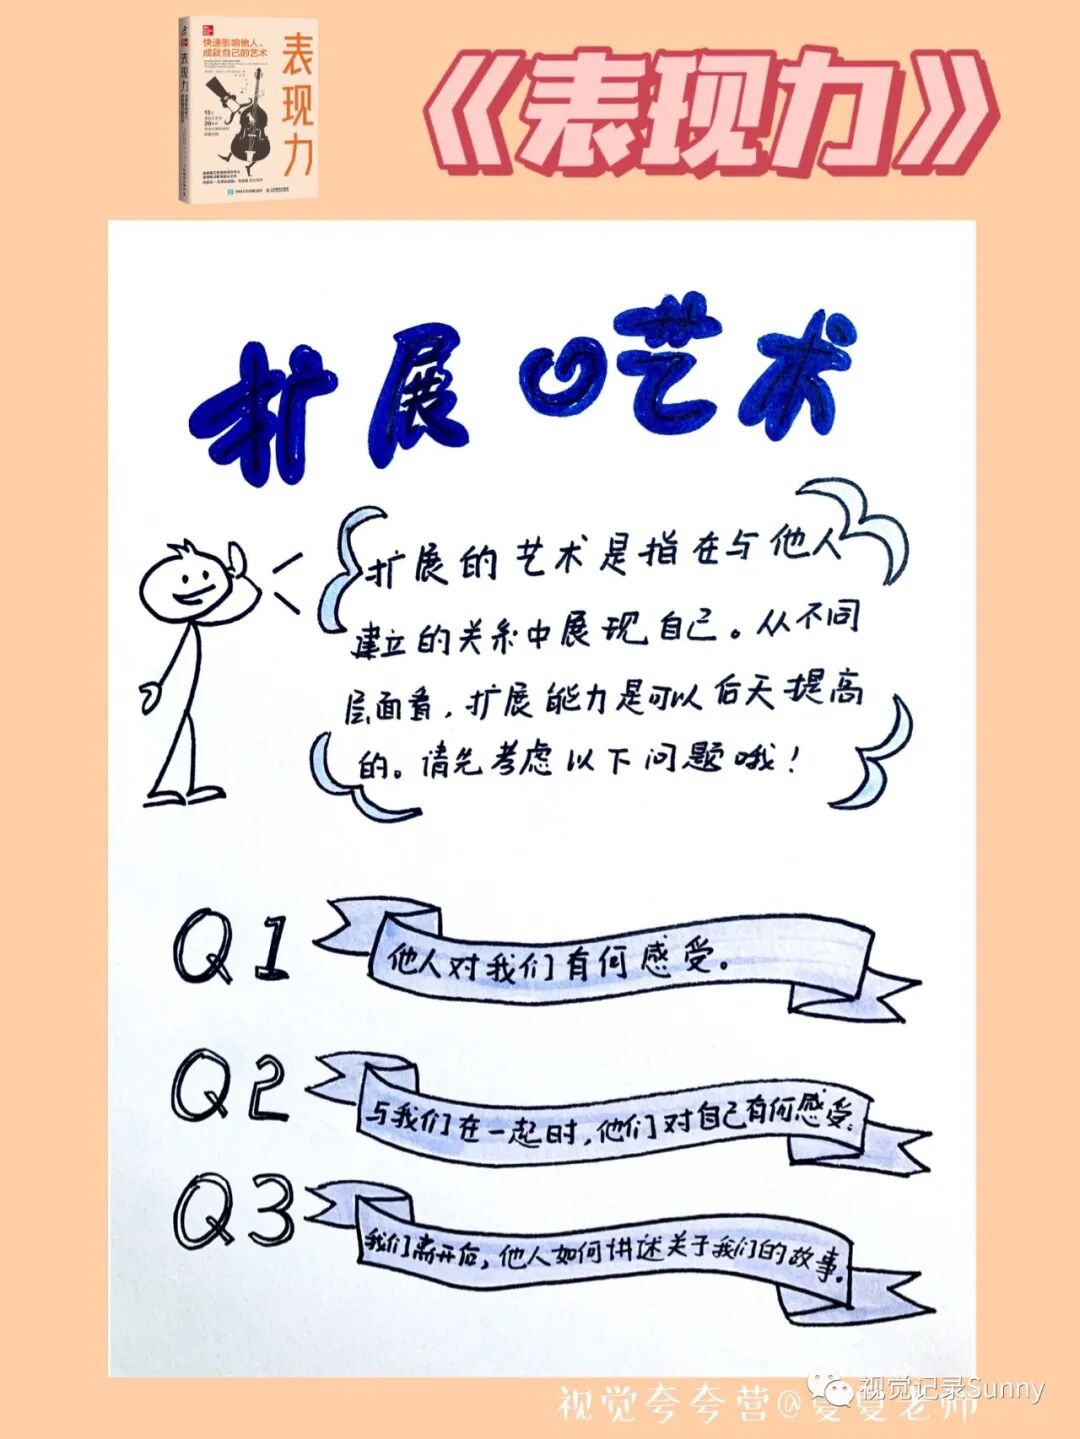 快速影响他人、
成就自己的艺术
表现力
表现力
《表现力》
扩展の艺术
扩展的艺术是指在与他人
建立的关系中展现自己。从不同
层面看，扩展能力是可以后天提高
的。请先考虑以下问题哦！
Q1
他人对我们有何感受。
Q2
与我们在一起时，他们对自己有何感受。
Q3
我们离开后，他人如何讲述关于我们的故事。
视觉记录Sunny
视觉夸夸营@夏夏老师